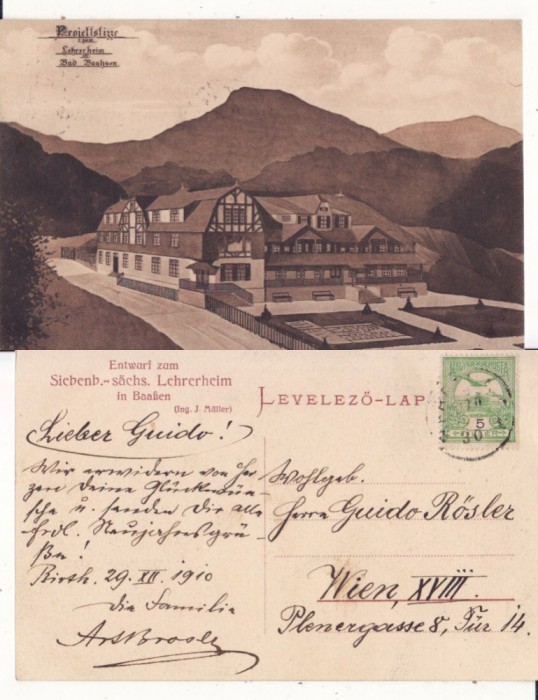 Projektskizze
zum
Lehrerheim
in
Bad Baassen
Entwurf zum
Siebenb.-sächs. Lehrerheim
in Baaßen
(Ing. J. Müller)
LEVELEZŐ-LAP
5
Lieber Guido!
Wir erwidern von Her
zen Deine Glückwün-
sche u. senden Dir alle
frdl. Neujahrsgrü-
ße!
29. XII. 1910
Die Familie
Wohlgeb.
Herrn Guido Rösler
Wien, XVIII.
Plenergasse 8, Tür 14.